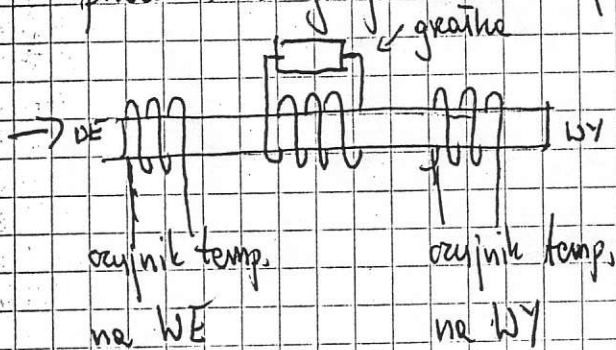 grzałka
WE
WY
czujnik temp.
na WE
czujnik temp.
na WY